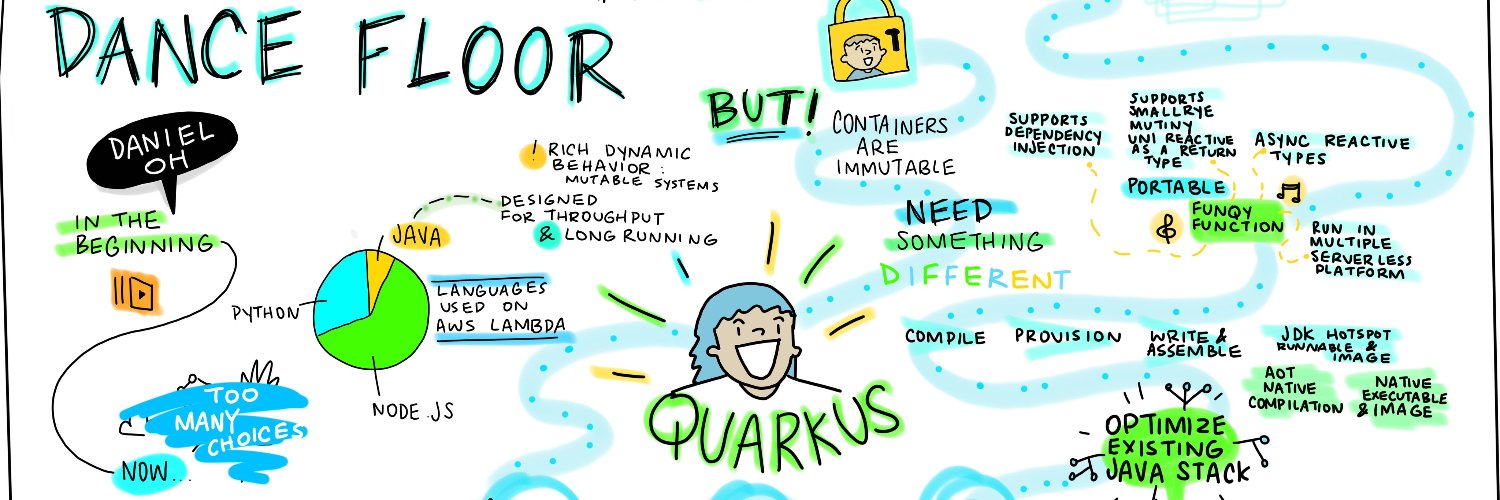 DANCE FLOOR
DANIEL
OH
IN THE
BEGINNING
NOW...
TOO
MANY
CHOICES
PYTHON
JAVA
NODE.JS
LANGUAGES
USED ON
AWS LAMBDA
! RICH DYNAMIC
BEHAVIOR:
MUTABLE SYSTEMS
DESIGNED
FOR THROUGHPUT
& LONG RUNNING
BUT!
CONTAINERS
ARE
IMMUTABLE
NEED
SOMETHING
DIFFERENT
QUARKUS
SUPPORTS
DEPENDENCY
INJECTION
SUPPORTS
SMALLRYE
MUTINY
UNI REACTIVE
AS A RETURN
TYPE
ASYNC REACTIVE
TYPES
PORTABLE
FUNQY
FUNCTION
RUN IN
MULTIPLE
SERVERLESS
PLATFORM
COMPILE
PROVISION
WRITE &
ASSEMBLE
JDK HOTSPOT
RUNNABLE &
IMAGE
AOT
NATIVE
COMPILATION
NATIVE
EXECUTABLE
& IMAGE
OPTIMIZE
EXISTING
JAVA STACK